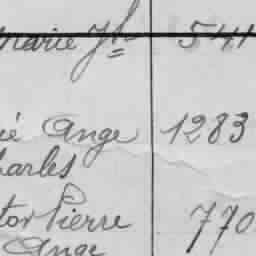 Marie Jh 541
ié Ange 1283
harles
tor Pierre 770
Ange